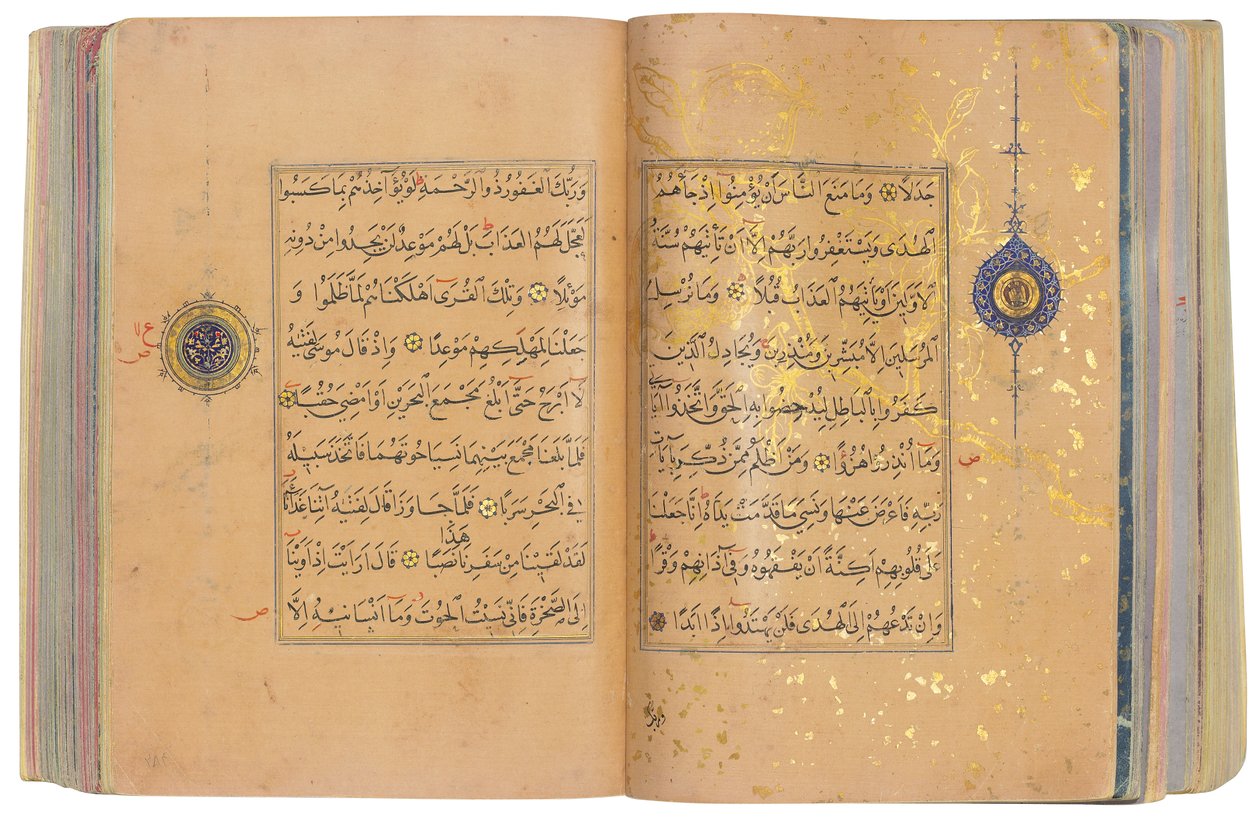 جَدَلًا وَمَا مَنَعَ النَّاسَ اَنْ يُؤْمِنُوا اِذْ جَاءَهُمُ
الْهُدَى وَيَسْتَغْفِرُوا رَبَّهُمْ اِلَّا اَنْ تَأْتِيَهُمْ سُنَّةُ
الْاَوَّلِينَ اَوْ يَأْتِيَهُمُ الْعَذَابُ قُبُلًا وَمَا نُرْسِلُ
الْمُرْسَلِينَ اِلَّا مُبَشِّرِينَ وَمُنْذِرِينَ وَيُجَادِلُ الَّذِينَ
كَفَرُوا بِالْبَاطِلِ لِيُدْحِضُوا بِهِ الْحَقَّ وَاتَّخَذُوا آيَاتِي
وَمَا اُنْذِرُوا هُزُوًا وَمَنْ اَظْلَمُ مِمَّنْ ذُكِّرَ بِآيَاتِ
رَبِّهِ فَاَعْرَضَ عَنْهَا وَنَسِيَ مَا قَدَّمَتْ يَدَاهُ اِنَّا جَعَلْنَا
عَلَى قُلُوبِهِمْ اَكِنَّةً اَنْ يَفْقَهُوهُ وَفِي آذَانِهِمْ وَقْرًا
وَاِنْ تَدْعُهُمْ اِلَى الْهُدَى فَلَنْ يَهْتَدُوا اِذًا اَبَدًا
ص
وربك
وَرَبُّكَ الْغَفُورُ ذُو الرَّحْمَةِ لَوْ يُؤَاخِذُهُمْ بِمَا كَسَبُوا
لَعَجَّلَ لَهُمُ الْعَذَابَ بَلْ لَهُمْ مَوْعِدٌ لَنْ يَجِدُوا مِنْ دُونِهِ
مَوْئِلًا وَتِلْكَ الْقُرَى اَهْلَكْنَاهُمْ لَمَّا ظَلَمُوا وَ
جَعَلْنَا لِمَهْلِكِهِمْ مَوْعِدًا وَاِذْ قَالَ مُوسَى لِفَتَيهُ
لَا اَبْرَحُ حَتَّى اَبْلُغَ مَجْمَعَ الْبَحْرَيْنِ اَوْ اَمْضِيَ حُقُبًا
فَلَمَّا بَلَغَا مَجْمَعَ بَيْنِهِمَا نَسِيَا حُوتَهُمَا فَاتَّخَذَ سَبِيلَهُ
فِي الْبَحْرِ سَرَبًا فَلَمَّا جَاوَزَا قَالَ لِفَتَيهُ آتِنَا غَدَاءَنَا
هَذَا
لَقَدْ لَقِينَا مِنْ سَفَرِنَا نَصَبًا قَالَ اَرَاَيْتَ اِذْ اَوَيْنَا
اِلَى الصَّخْرَةِ فَاِنِّي نَسِيتُ الْحُوتَ وَمَا اَنْسَانِيهُ اِلَّا
ع
ص
ص